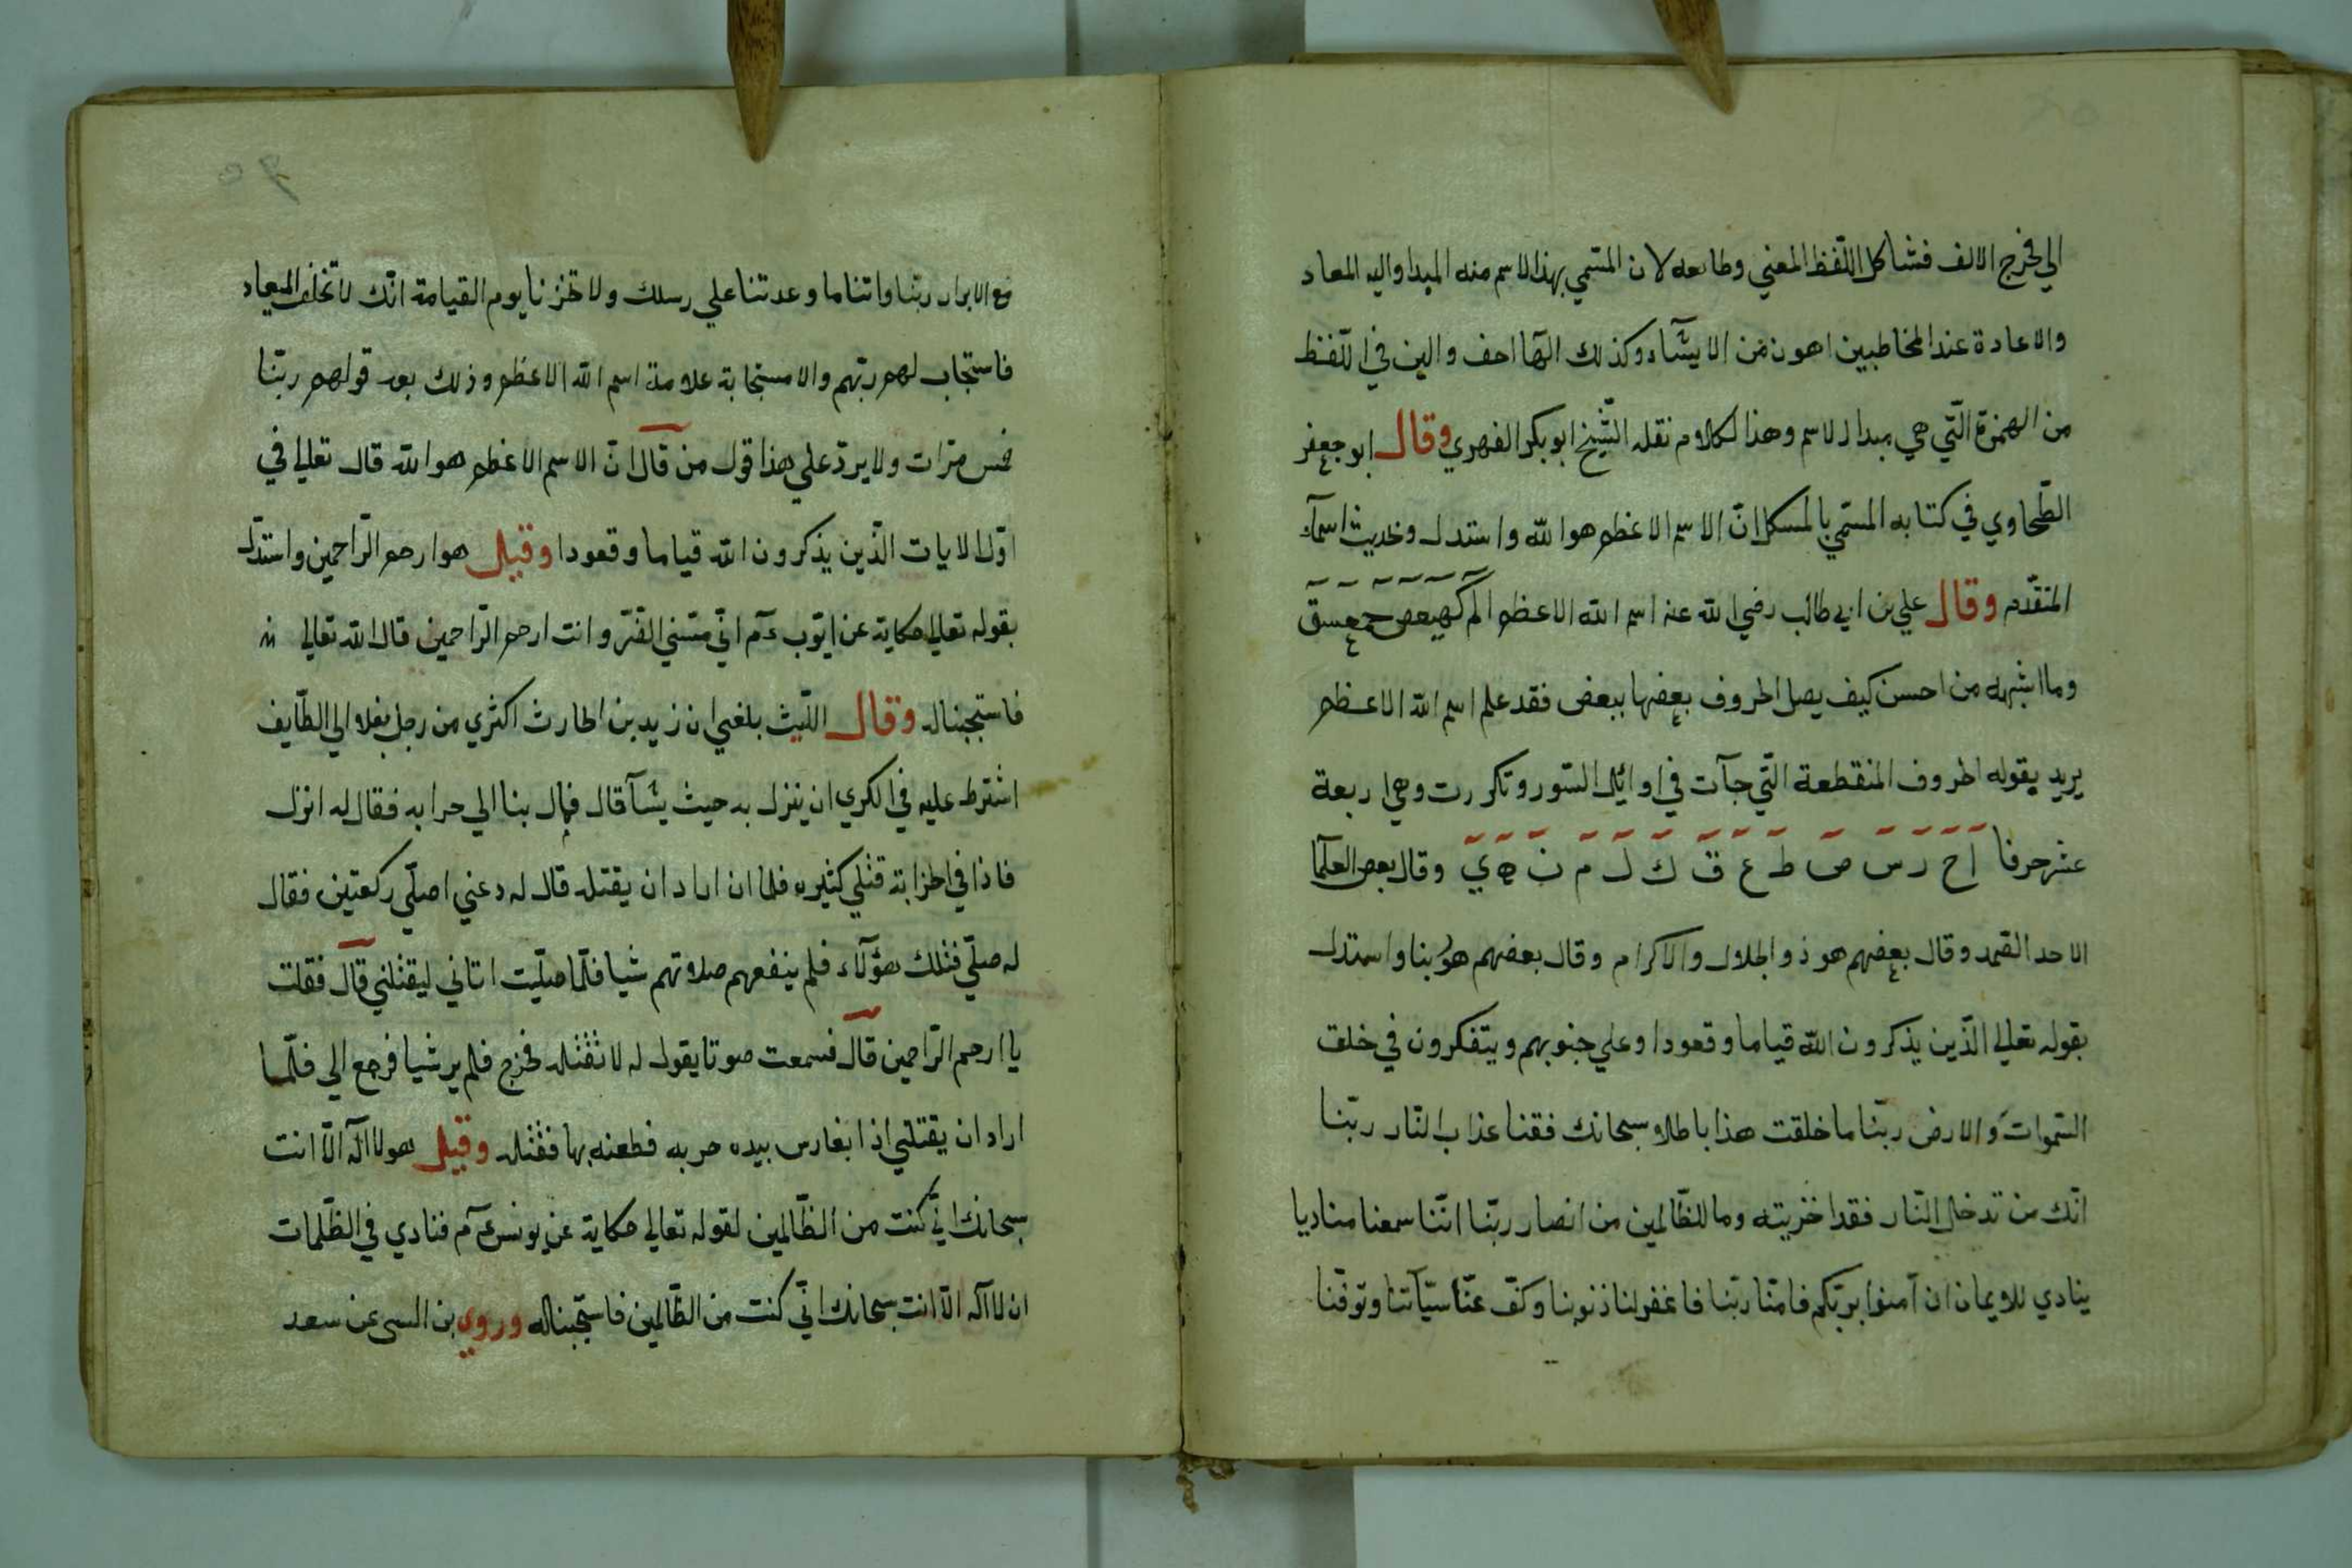 الي مخرج الالف فشاكل اللفظ المعني وطابعه لان المسمي بهذا الاسم منه المبدا واليه المعاد
والاعادة عند المخاطبين اهون من الايشآء وكذلك الهآ اخف والين في اللفظ
من الهمزة التي هي مبدا الاسم وهذا الكلام نقله الشيخ ابو بكر الفهري وقال ابو جعفر
الطحاوي في كتابه المسمي بالمسكل ان الاسم الاعظم هو الله واستدل وحديث اسمآء
المتقدم وقال علي بن ابي طالب رضي الله عنه اسم الله الاعظم الم كهيعص حمعسق
وما اشبهه من احسن كيف يصل الحروف بعضها ببعض فقد علم اسم الله الاعظم
يريد بقوله الحروف المنقطعة التي جآت في اوائل السور وتكررت وهي اربعة
عشر حرفا ا ح ر س ص ط ع ق ك ل م ن ه ي وقال بعض العلمآ
الاحد الصمد وقال بعضهم هو ذو الجلال والاكرام وقال بعضهم هو ربنا واستدل
بقوله تعالي الذين يذكرون الله قياما وقعودا وعلي جنوبهم ويتفكرون في خلق
السموات والارض ربنا ما خلقت هذا باطلا سبحانك فقنا عذاب النار ربنا
انك من تدخل النار فقد اخزيته وما للظالمين من انصار ربنا اننا سمعنا مناديا
ينادي للايمان ان آمنوا بربكم فامنا ربنا فاغفر لنا ذنوبنا وكفر عنا سيآتنا وتوفنا
مع الابرار ربنا واتنا ما وعدتنا علي رسلك ولا تخزنا يوم القيامة انك لا تخلف الميعاد
فاستجاب لهم ربهم والاستجابة علامة اسم الله الاعظم وذلك بعد قولهم ربنا
خمس مرات ولا يرد علي هذا قول من قال ان الاسم الاعظم هو الله قال تعالي في
اول الايات الذين يذكرون الله قياما وقعودا وقيل هو ارحم الراحمين واستدل
بقوله تعالي حكاية عن ايوب ءم اني مسني الضر وانت ارحم الراحمين قال الله تعالي
فاستجبنا له وقال الليث بلغني ان زيد بن الحارث اكتري من رجل بغلا الي الطايف
اشترط عليه في الكري ان ينزل به حيث يشآ قال فمال بنا الي حرابه فقال له انزل
فاذا في الخزابة قتلي كثيره فلما ان اراد ان يقتله قال له دعني اصلي ركعتين فقال
له صلي فتلك هؤلآء فلم ينفعهم صلاتهم شيا فلما صليت اتاني ليقتلني قال فقلت
يا ارحم الراحمين قال فسمعت صوتا يقول له لا تقتله فخرج فلم ير شيا فرجع الي فلما
اراد ان يقتلني اذا بفارس بيده حربه فطعنه بها فقتله وقيل هو لا اله الا انت
سبحانك اني كنت من الظالمين لقوله تعالي حكاية عن يونس ءم فنادي في الظلمات
ان لا اله الا انت سبحانك اني كنت من الظالمين فاستجبنا له وروي بن السي عن سعد